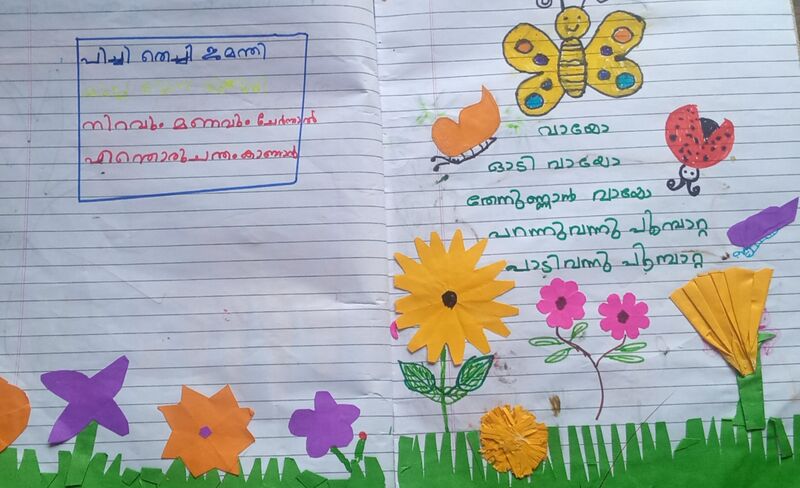 പിച്ചി തെച്ചി ജമന്തി
നിറവും മണവും ചേർന്നാൽ
എന്തൊരു ചന്തം കാണാൻ
വായോ
ഓടി വായോ
തേനുണ്ണാൻ വായോ
പറന്നുവന്നു പൂമ്പാറ്റ
പാടിവന്നു പൂമ്പാറ്റ